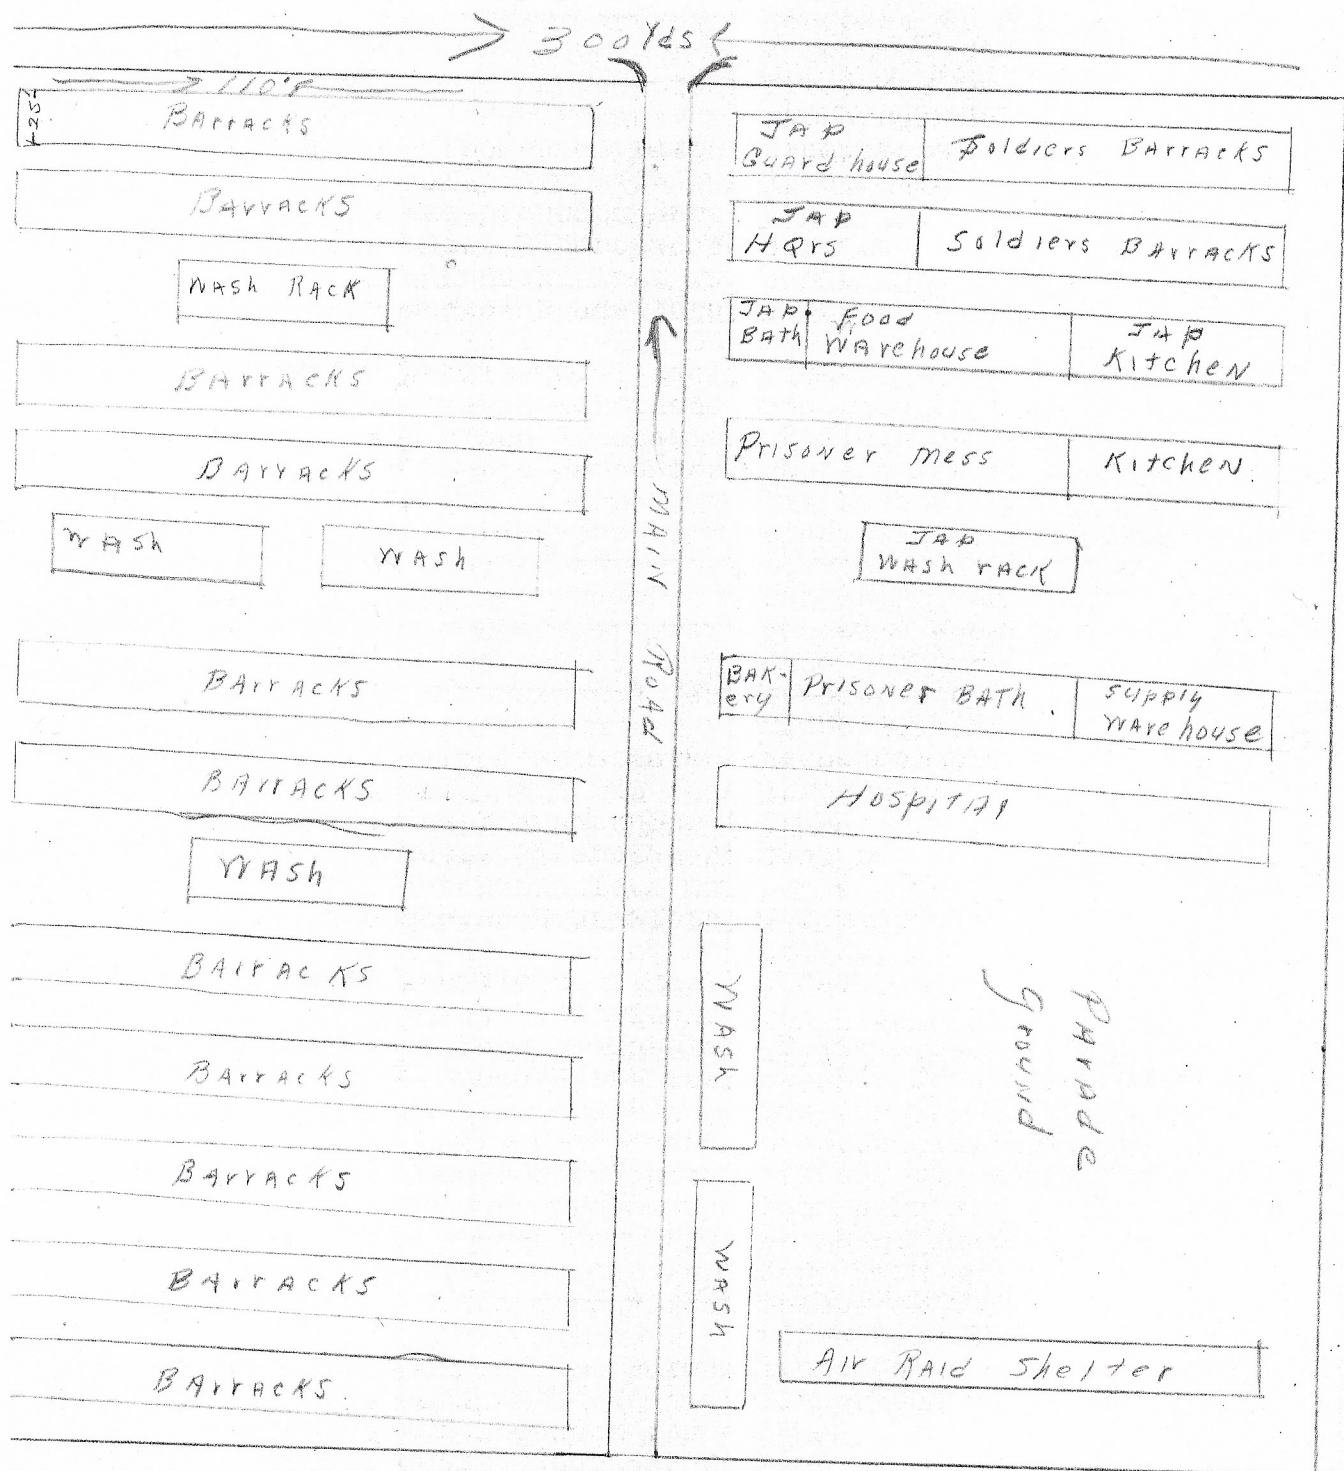 300 Yds
110'
25'
Barracks
Barracks
Wash Rack
Barracks
Barracks
Wash
Wash
Barracks
Barracks
Wash
Barracks
Barracks
Barracks
Barracks
Barracks
Main Road
JAP
Guard house
Soldiers Barracks
JAP
HQrs
Soldiers Barracks
JAP
Bath
Food
Warehouse
JAP
Kitchen
Prisoner Mess
Kitchen
JAP
Wash rack
Bak-
ery
Prisoner Bath
Supply
Warehouse
Hospital
Wash
Wash
Parade
ground
Air Raid Shelter